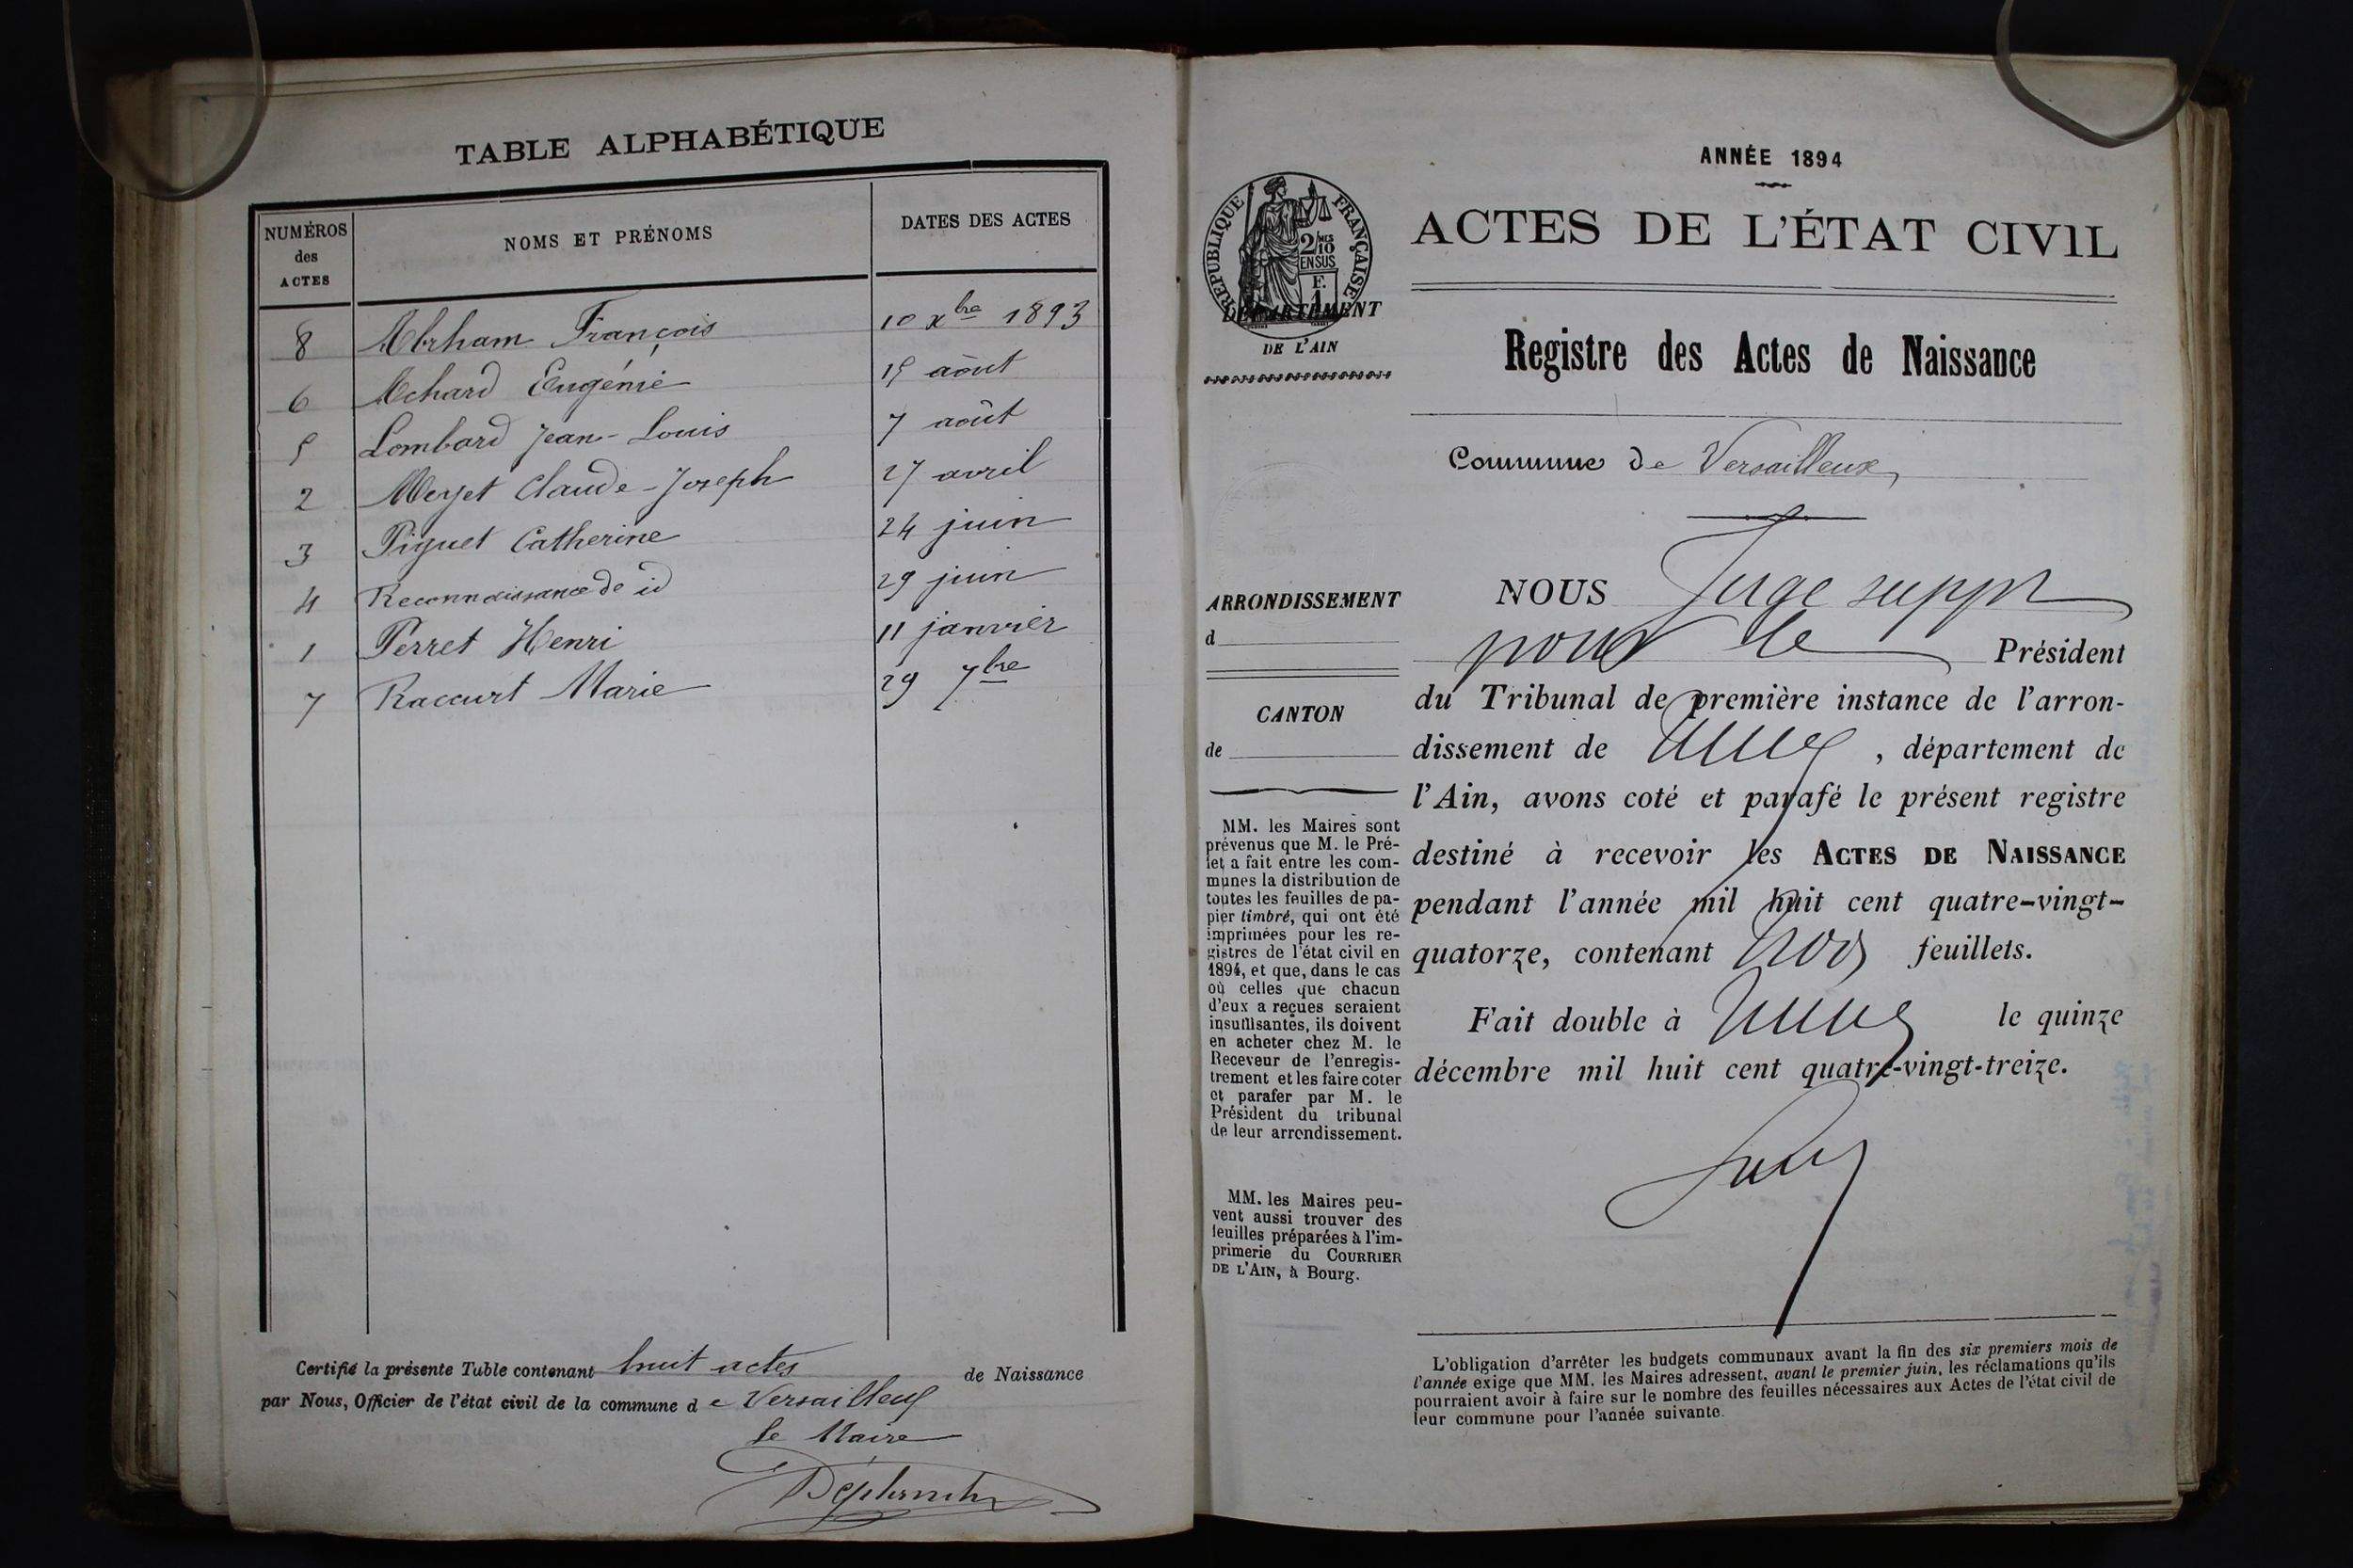 TABLE ALPHABÉTIQUE
NUMÉROS des ACTES
NOMS ET PRÉNOMS
DATES DES ACTES
8 Abrham François 10 Xbre 1893
6 Achard Eugénie 15 août
5 Lombard Jean-Louis 7 août
2 Merjet Claude-Joseph 27 avril
3 Piguet Catherine 24 juin
4 Reconnaissance de id 29 juin
1 Perret Henri 11 janvier
7 Raccurt Marie 29 7bre
Certifié la présente Table contenant huit actes de Naissance
par Nous, Officier de l'état civil de la commune de Versailleux
Le Maire
ANNÉE 1894
ACTES DE L'ÉTAT CIVIL
RÉPUBLIQUE FRANÇAISE
2/10 MES
EN SUS
F.
1
DÉPARTEMENT
DE L'AIN
Registre des Actes de Naissance
Commune de Versailleux
ARRONDISSEMENT
d
CANTON
de
MM. les Maires sont
prévenus que M. le Pré-
fet a fait entre les com-
munes la distribution de
toutes les feuilles de pa-
pier timbré, qui ont été
imprimées pour les re-
gistres de l'état civil en
1894, et que, dans le cas
où celles que chacun
d'eux a reçues seraient
insuffisantes, ils doivent
en acheter chez M. le
Receveur de l'enregis-
trement et les faire coter
et parafer par M. le
Président du tribunal
de leur arrondissement.
MM. les Maires peu-
vent aussi trouver des
feuilles préparées à l'im-
primerie du COURRIER
DE L'AIN, à Bourg.
NOUS Juge suppt
pour le Président
du Tribunal de première instance de l'arron-
dissement de , département de
l'Ain, avons coté et parafé le présent registre
destiné à recevoir les ACTES DE NAISSANCE
pendant l'année mil huit cent quatre-vingt-
quatorze, contenant trois feuillets.
Fait double à le quinze
décembre mil huit cent quatre-vingt-treize.
L'obligation d'arrêter les budgets communaux avant la fin des six premiers mois de
l'année exige que MM. les Maires adressent, avant le premier juin, les réclamations qu'ils
pourraient avoir à faire sur le nombre des feuilles nécessaires aux Actes de l'état civil de
leur commune pour l'année suivante.